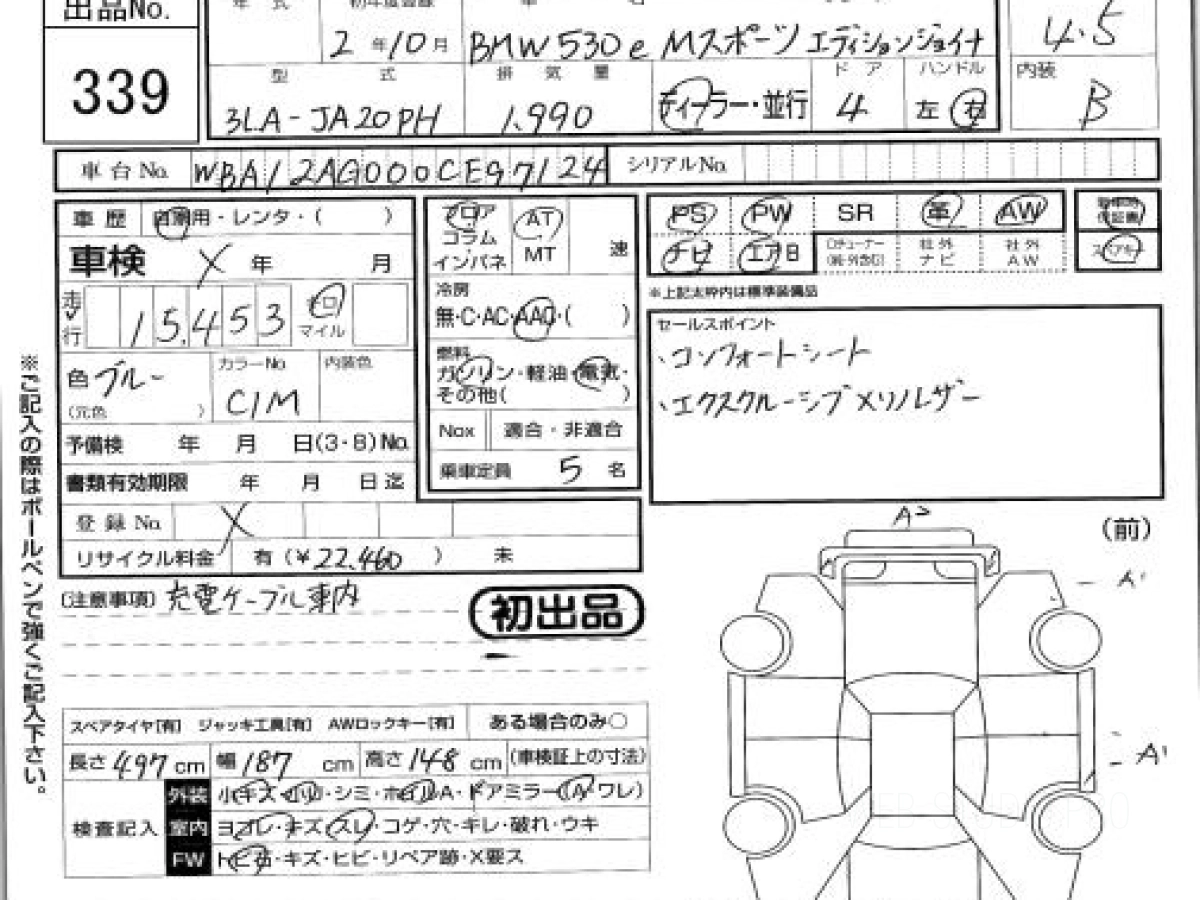 出品No.
339
年 式
初年度登録
2 年 10 月
BMW 530e Mスポーツ エディションジョイナ
4.5
型 式
3LA-JA20PH
排 気 量
1.990
ディーラー・並行
ド ア
4
ハンドル
左 右
内装
B
車台No.
WBA12AG000CE97124
シリアルNo.
車 歴
自家用・レンタ・( )
車検
X 年 月
走行
15,453
キロ
マイル
色 ブルー
(元色 )
カラーNo.
C1M
内装色
予備検 年 月 日(3・8)No.
書類有効期限 年 月 日迄
登録No.
X
リサイクル料金 有 (¥22,460 ) 未
フロア
コラム
インパネ
AT
MT
速
冷房
無・C・AC・AAC・( )
燃料
ガソリン・軽油・電気・
その他( )
Nox 適合・非適合
乗車定員 5 名
PS PW SR 革 AW
ナビ エアB
社外ナビ
社外AW
保証書
スペアキー
※上記太枠内は標準装備品
セールスポイント
、コンフォートシート
、エクスクルーシブメリノレザー
※ご記入の際はボールペンで強くご記入下さい。
〔注意事項〕充電ケーブル車内
初出品
スペアタイヤ[有] ジャッキ工具[有] AWロックキー[有] ある場合のみ○
長さ 497 cm 幅 187 cm 高さ 148 cm (車検証上の寸法)
検査記入
外装 小キズ・凹・シミ・ホイルA・ドアミラー(A・ワレ)
室内 ヨゴレ・キズ・スレ・コゲ・穴・キレ・破れ・ウキ
FW トビ石・キズ・ヒビ・リペア跡・X要ス
(前)
A2
A1
A1